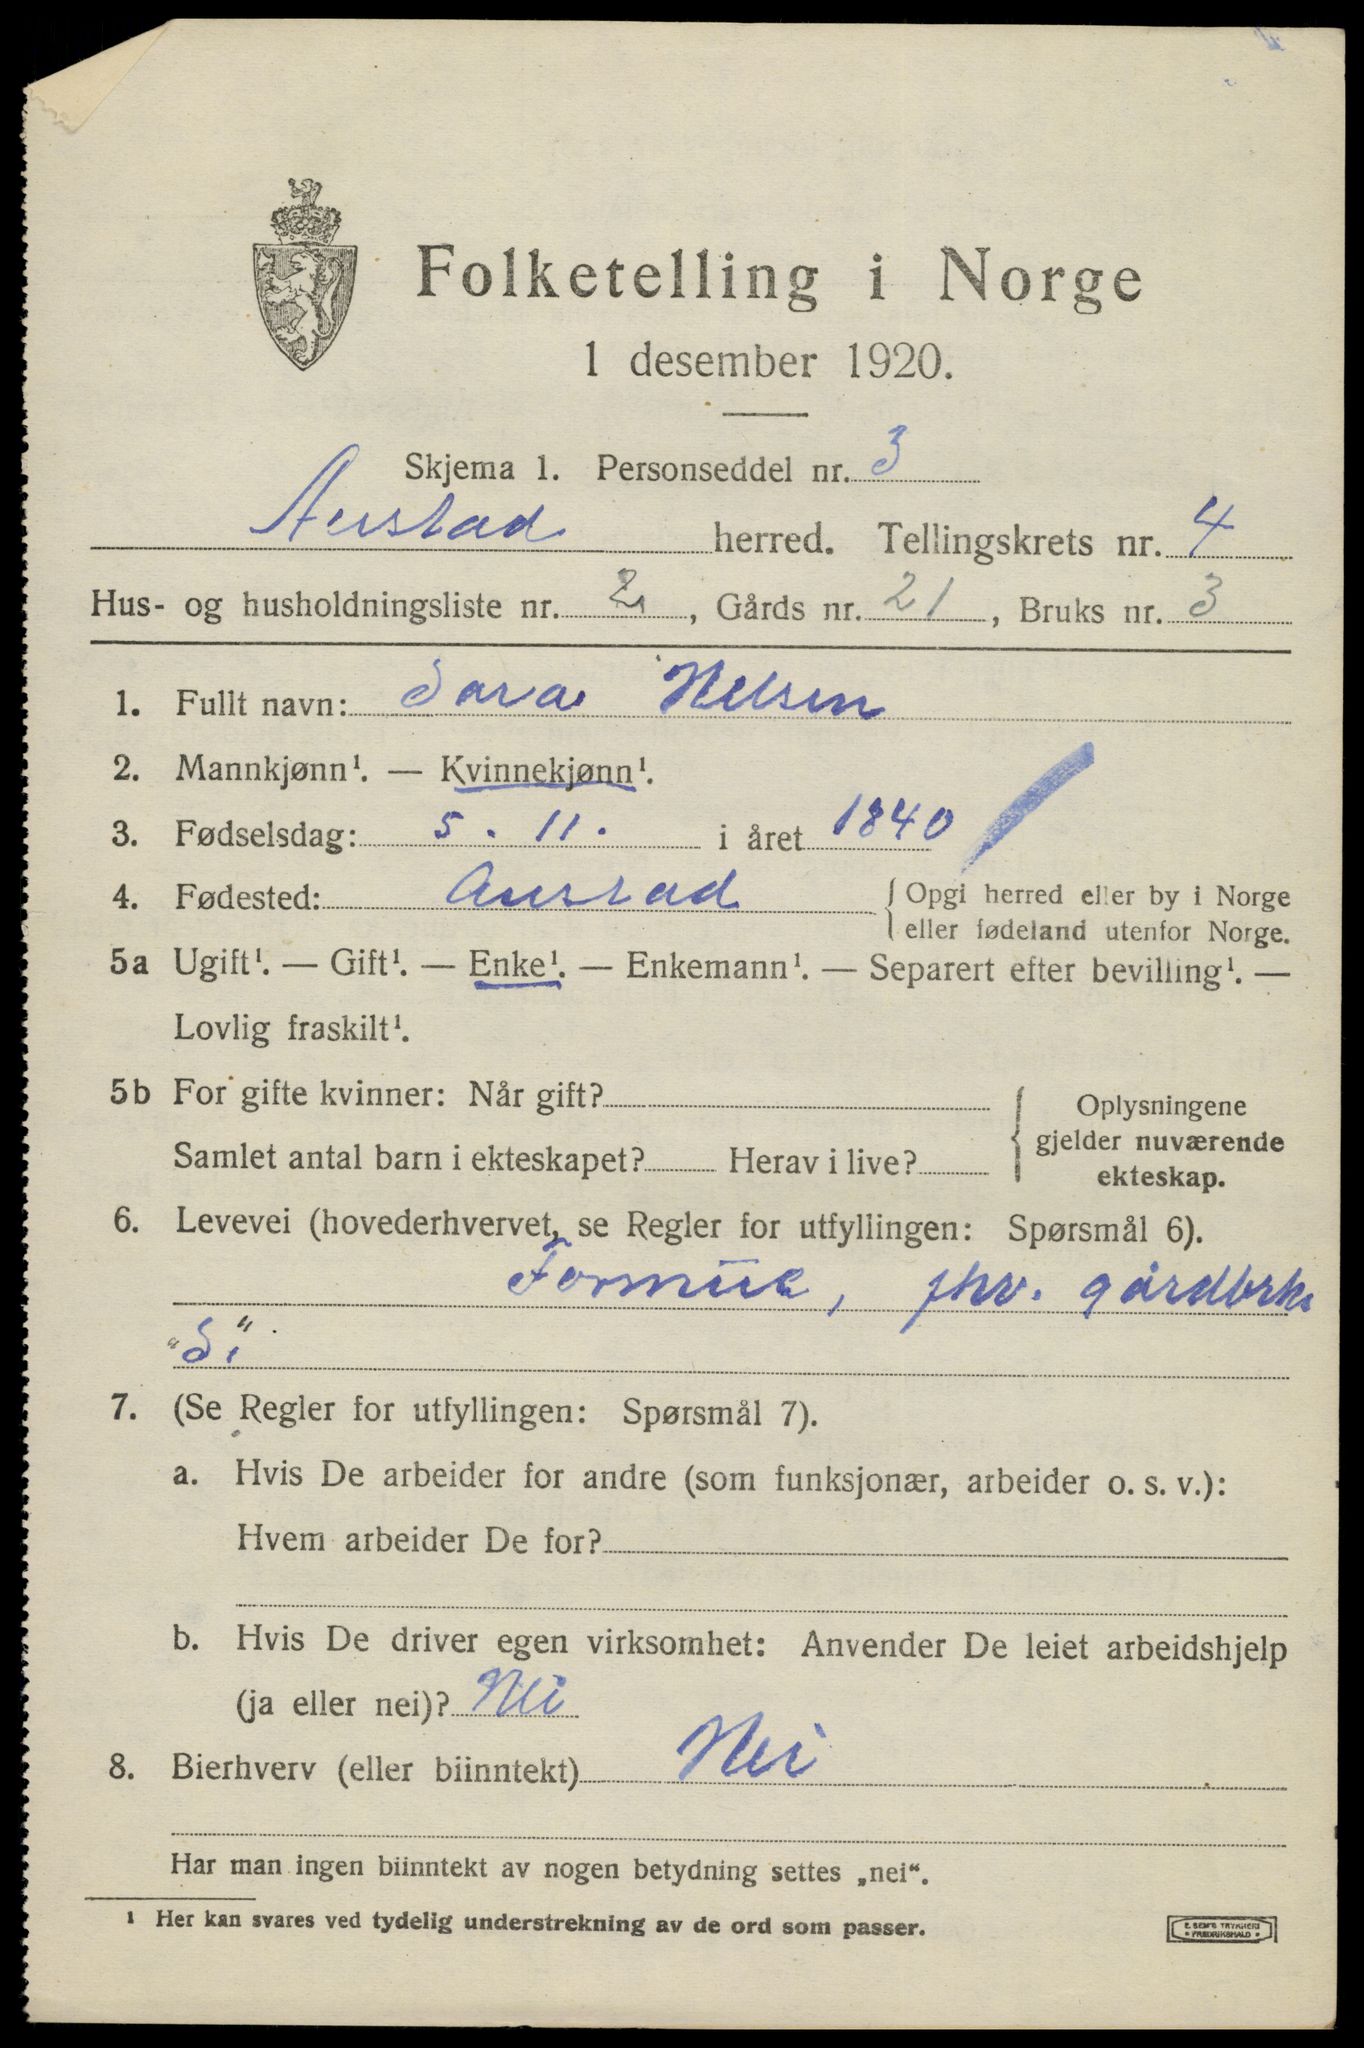 Folketelling i Norge
1 desember 1920.
Skjema 1. Personseddel nr. 3
Austad herred. Tellingskrets nr. 4
Hus- og husholdningsliste nr. 2, Gårds nr. 21, Bruks nr. 3
1. Fullt navn: Sara Nelsen
2. Mannkjønn¹. — Kvinnekjønn¹.
3. Fødselsdag: 5. 11. i året 1840
4. Fødested: Austad { Opgi herred eller by i Norge
eller fødeland utenfor Norge.
5a Ugift¹. — Gift¹. — Enke¹. — Enkemann¹. — Separert efter bevilling¹. —
Lovlig fraskilt¹.
5b For gifte kvinner: Når gift?
Samlet antal barn i ekteskapet? Herav i live?
{ Oplysningene
gjelder nuværende
ekteskap.
6. Levevei (hovederhvervet, se Regler for utfyllingen: Spørsmål 6).
Formue, fhv. gårdbrk.
"S."
7. (Se Regler for utfyllingen: Spørsmål 7).
a. Hvis De arbeider for andre (som funksjonær, arbeider o. s. v.):
Hvem arbeider De for?
b. Hvis De driver egen virksomhet: Anvender De leiet arbeidshjelp
(ja eller nei)? Nei
8. Bierhverv (eller biinntekt) Nei
Har man ingen biinntekt av nogen betydning settes „nei“.
¹ Her kan svares ved tydelig understrekning av de ord som passer.
E. SEM'S TRYKKERI
FREDRIKSHALD